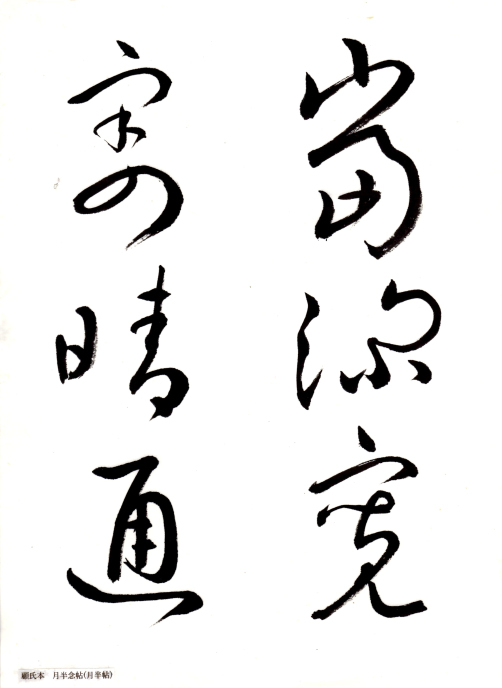 當深寬
寄晴通
顧氏本　月半念帖(月半帖)